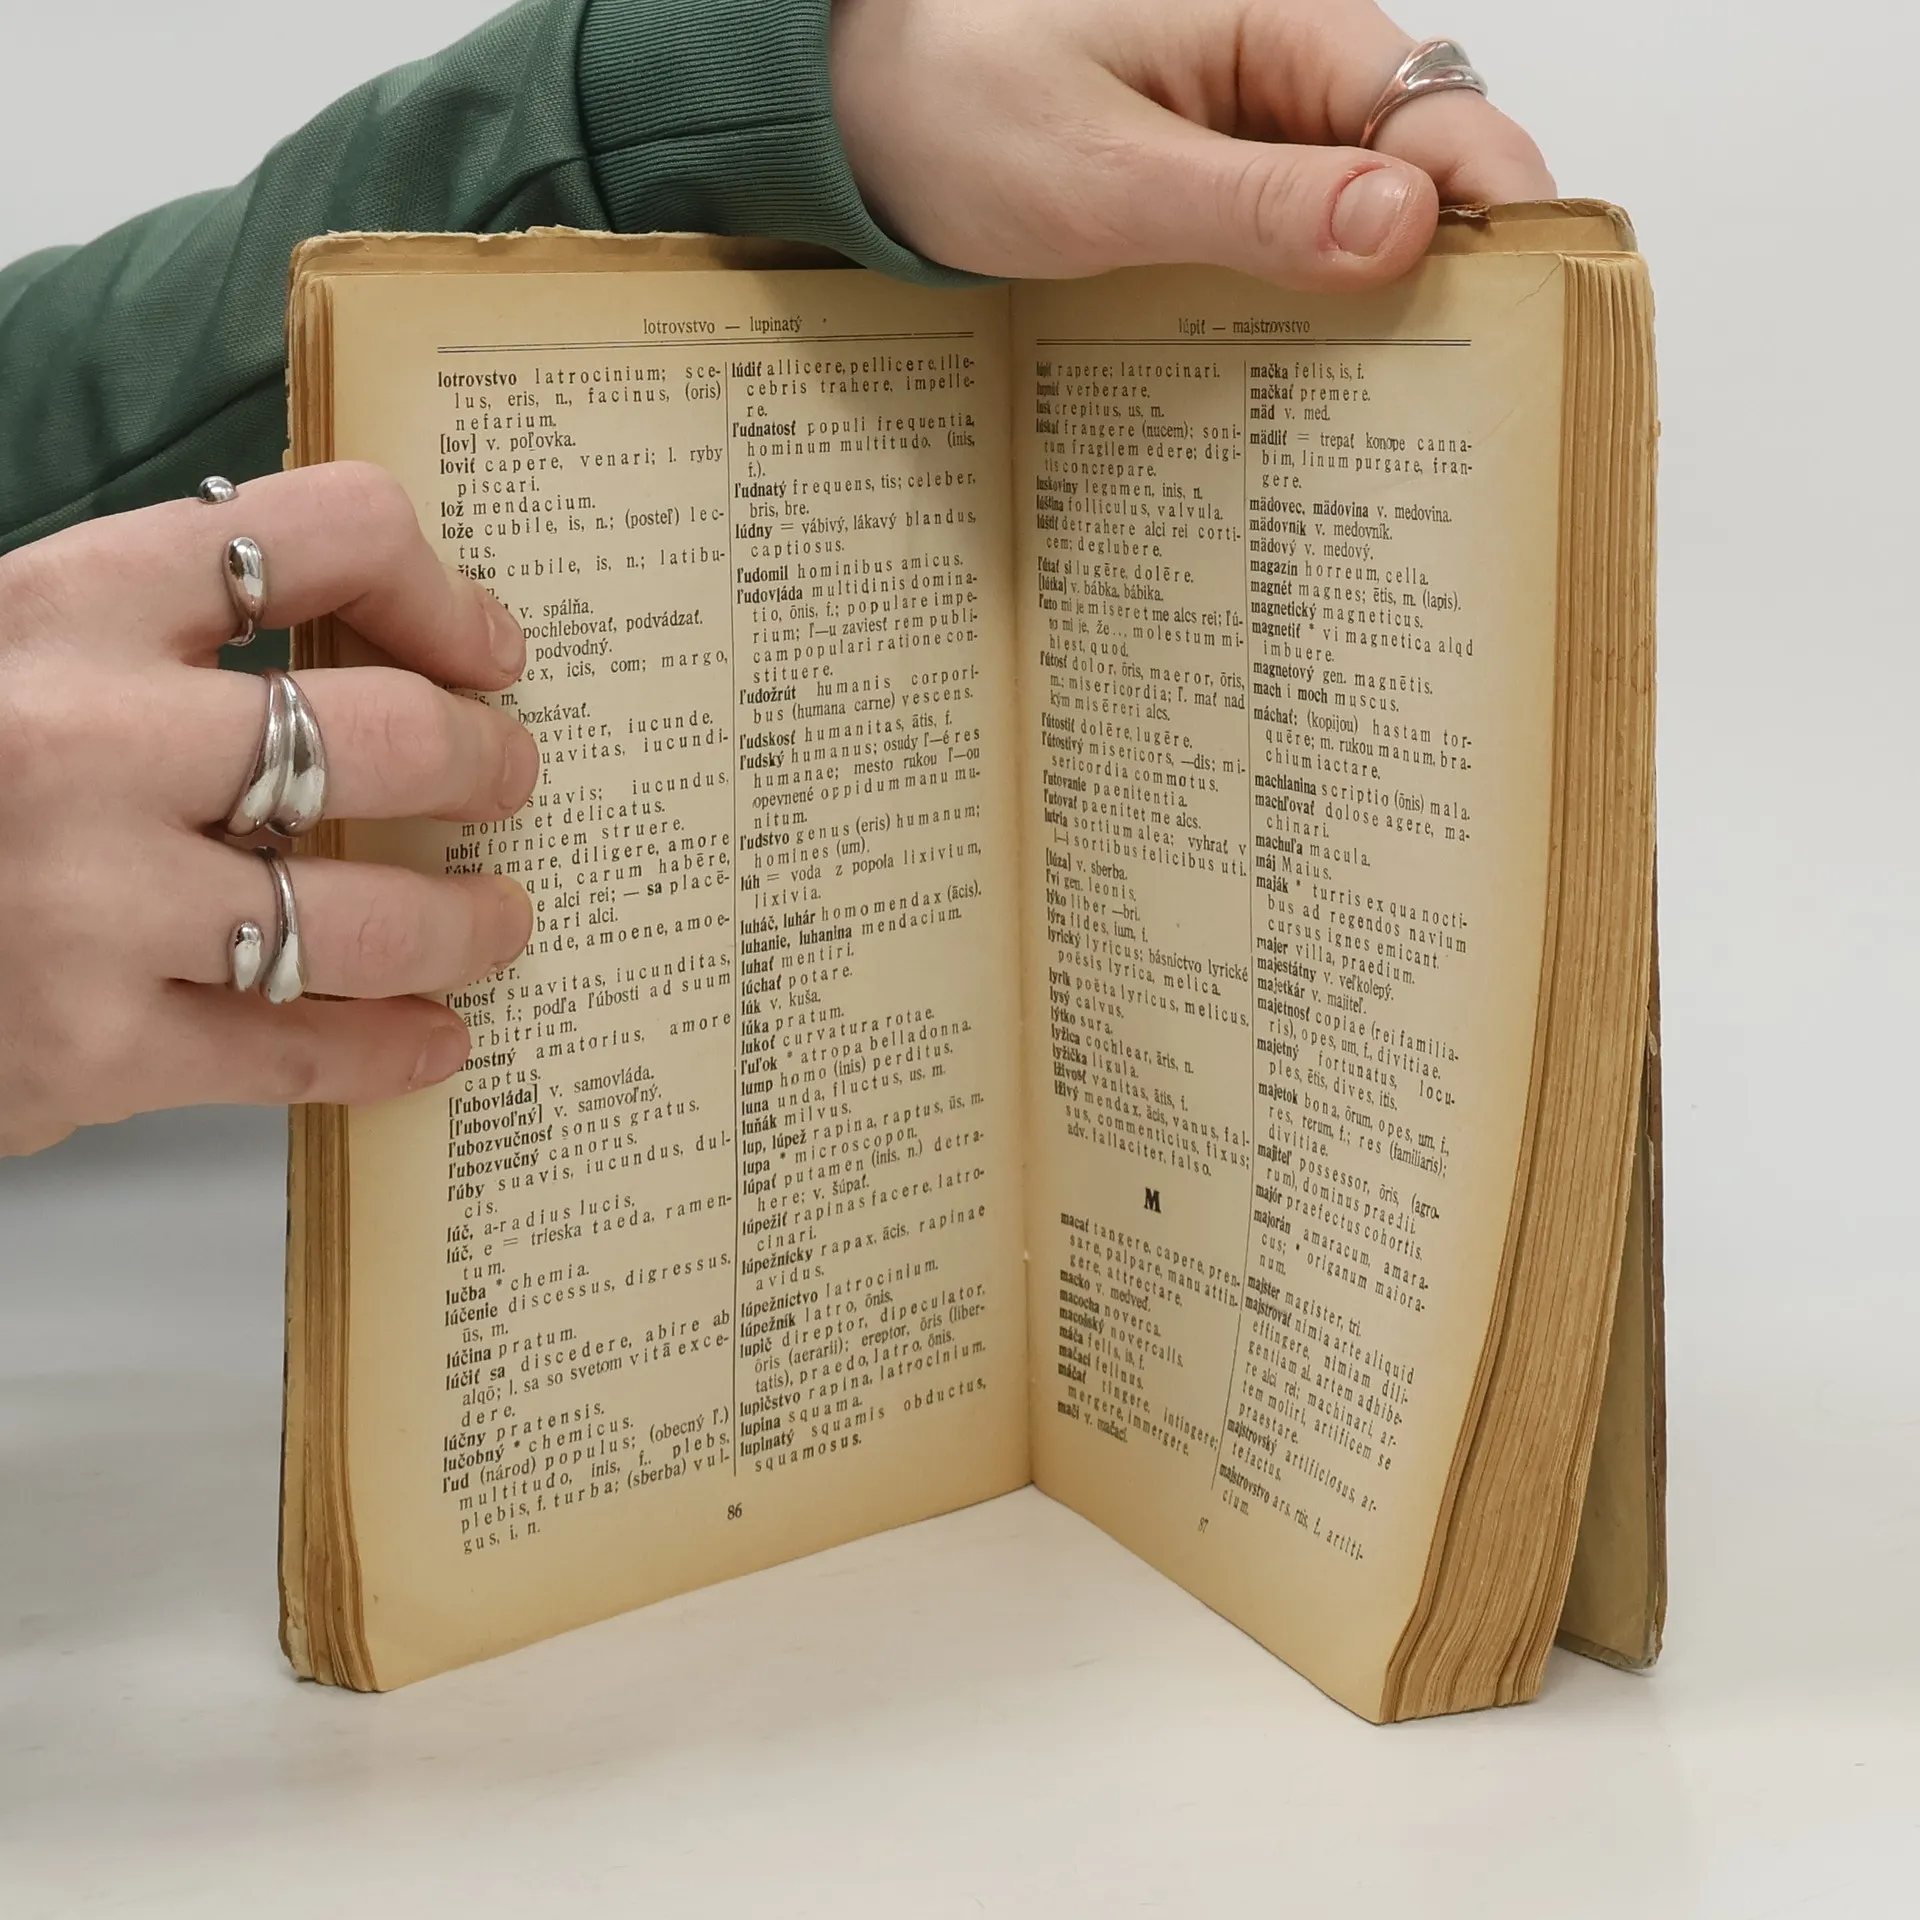 lotrovstvo — lupinatý
lotrovstvo latrocinium; sce-
lus, eris, n., facinus, (oris)
nefarium.
[lov] v. poľovka.
loviť capere, venari; l. ryby
piscari.
lož mendacium.
lože cubile, is, n.; (posteľ) lec-
tus.
žisko cubile, is, n.; latibu-
v. spálňa.
pochlebovať, podvádzať.
podvodný.
ex, icis, com; margo,
is, m.
bozkávať.
aviter, iucunde.
uavitas, iucundi-
f.
suavis; iucundus,
mollis et delicatus.
ľubiť fornicem struere.
amare, diligere, amore
qui, carum habēre,
e alci rei; — sa placē-
bari alci.
unde, amoene, amoe-
ter.
ľubosť suavitas, iucunditas,
ātis, f.; podľa ľúbosti ad suum
rbitrium.
bostný amatorius, amore
captus.
[ľubovláda] v. samovláda.
[ľubovoľný] v. samovoľný.
ľubozvučnosť sonus gratus.
ľubozvučný canorus.
ľúby suavis, iucundus, dul-
cis.
lúč, a-radius lucis.
lúč, e = trieska taeda, ramen-
tum.
lučba * chemia.
lúčenie discessus, digressus,
ūs, m.
lúčina pratum.
lúčiť sa discedere, abire ab
alqō; l. sa so svetom vitā exce-
dere.
lúčny pratensis.
lučobný * chemicus.
ľud (národ) populus; (obecný ľ.)
multitudo, inis, f., plebs,
plebis, f. turba; (sberba) vul-
gus, i, n.
lúdiť allicere, pellicere, ille-
cebris trahere, impelle-
re.
ľudnatosť populi frequentia,
hominum multitudo, (inis,
f.).
ľudnatý frequens, tis; celeber,
bris, bre.
lúdny = vábivý, lákavý blandus,
captiosus.
ľudomil hominibus amicus.
ľudovláda multidinis domina-
tio, ōnis, f.; populare impe-
rium; ľ—u zaviesť rem publi-
cam populari ratione con-
stituere.
ľudožrút humanis corpori-
bus (humana carne) vescens.
ľudskosť humanitas, ātis, f.
ľudský humanus; osudy ľ—é res
humanae; mesto rukou ľ—ou
opevnené oppidum manu mu-
nitum.
ľudstvo genus (eris) humanum;
homines (um).
lúh = voda z popola lixivium,
lixivia.
luháč, luhár homo mendax (ācis).
luhanie, luhanina mendacium.
luhať mentiri.
lúchať potare.
lúk v. kuša.
lúka pratum.
lukoť curvatura rotae.
ľuľok * atropa belladonna.
lump homo (inis) perditus.
luna unda, fluctus, us, m.
luňák milvus.
lup, lúpež rapina, raptus, ūs, m.
lupa * microscopon.
lúpať putamen (inis, n.) detra-
here; v. šúpať.
lúpežiť rapinas facere, latro-
cinari.
lúpežnícky rapax, ācis, rapinae
avidus.
lúpežníctvo latrocinium.
lúpežník latro, ōnis.
lupič direptor, dipeculator,
ōris (aerarii); ereptor, ōris (liber-
tatis), praedo, latro, ōnis.
lupičstvo rapina, latrocinium.
lupina squama.
lupinatý squamis obductus,
squamosus.
86
lúpiť — majstrovstvo
lúpiť rapere; latrocinari.
verberare.
lusk crepitus, us, m.
lúskať frangere (nucem); soni-
tum fragilem edere; digi-
tis concrepare.
luskoviny legumen, inis, n.
lúština folliculus, valvula.
lúštiť detrahere alci rei corti-
cem; deglubere.
ľútať si lugēre, dolēre.
[lútka] v. bábka, bábika.
ľuto mi je miseret me alcs rei; ľú-
to mi je, že.., molestum mi-
hi est, quod.
ľútosť dolor, ōris, maeror, ōris,
m.; misericordia; ľ. mať nad
kým misēreri alcs.
ľútostiť dolēre, lugēre.
ľútostivý misericors, —dis; mi-
sericordia commotus.
ľutovanie paenitentia.
ľutovať paenitet me alcs.
lutria sortium alea; vyhrať v
l—i sortibus felicibus uti.
[lúza] v. sberba.
ľví gen. leonis.
lyko liber —bri.
lýra fides, ium, f.
lyrický lyricus; básnictvo lyrické
poësis lyrica, melica.
lyrik poëta lyricus, melicus.
lysý calvus.
lýtko sura.
lyžica cochlear, āris, n.
lyžička ligula.
lživosť vanitas, ātis, f.
lživý mendax, ācis, vanus, fal-
sus, commenticius, fixus;
adv. fallaciter, falso.
M
macať tangere, capere, pren-
sare, palpare, manu attin-
gere, attrectare.
macko v. medveď.
macocha noverca.
macošský novercalis.
máča felis, is, f.
mačací felinus.
máčať tingere, intingere;
mergere, immergere.
mačí v. mačací.
mačka felis, is, f.
mačkať premere.
mäd v. med.
mädliť = trepať konope canna-
bim, linum purgare, fran-
gere.
mädovec, mädovina v. medovina.
mädovník v. medovník.
mädový v. medový.
magazín horreum, cella.
magnét magnes; ētis, m. (lapis).
magnetický magneticus.
magnetiť * vi magnetica alqd
imbuere.
magnetový gen. magnētis.
mach i moch muscus.
máchať: (kopijou) hastam tor-
quēre; m. rukou manum, bra-
chium iactare.
machlanina scriptio (ōnis) mala.
machľovať dolose agere, ma-
chinari.
machuľa macula.
máj Maius.
maják * turris ex qua nocti-
bus ad regendos navium
cursus ignes emicant.
majer villa, praedium.
majestátny v. veľkolepý.
majetkár v. majiteľ.
majetnosť copiae (rei familia-
ris), opes, um, f., divitiae.
majetný fortunatus, locu-
ples, ētis, dives, itis.
majetok bona, ōrum, opes, um, f.,
res, rerum, f.; res (familiaris);
divitiae.
majiteľ possessor, ōris, (agro-
rum), dominus praedii.
majór praefectus cohortis.
majorán amaracum, amara-
cus; * origanum maiora-
num.
majster magister, tri.
majstrovať nimia arte aliquid
effingere, nimiam dili-
gentiam al. artem adhibe-
re alci rei; machinari, ar-
tem moliri, artificem se
praestare.
majstrovský artificiosus, ar-
tefactus.
majstrovstvo ars, rtis, f. artifi-
cium.
87